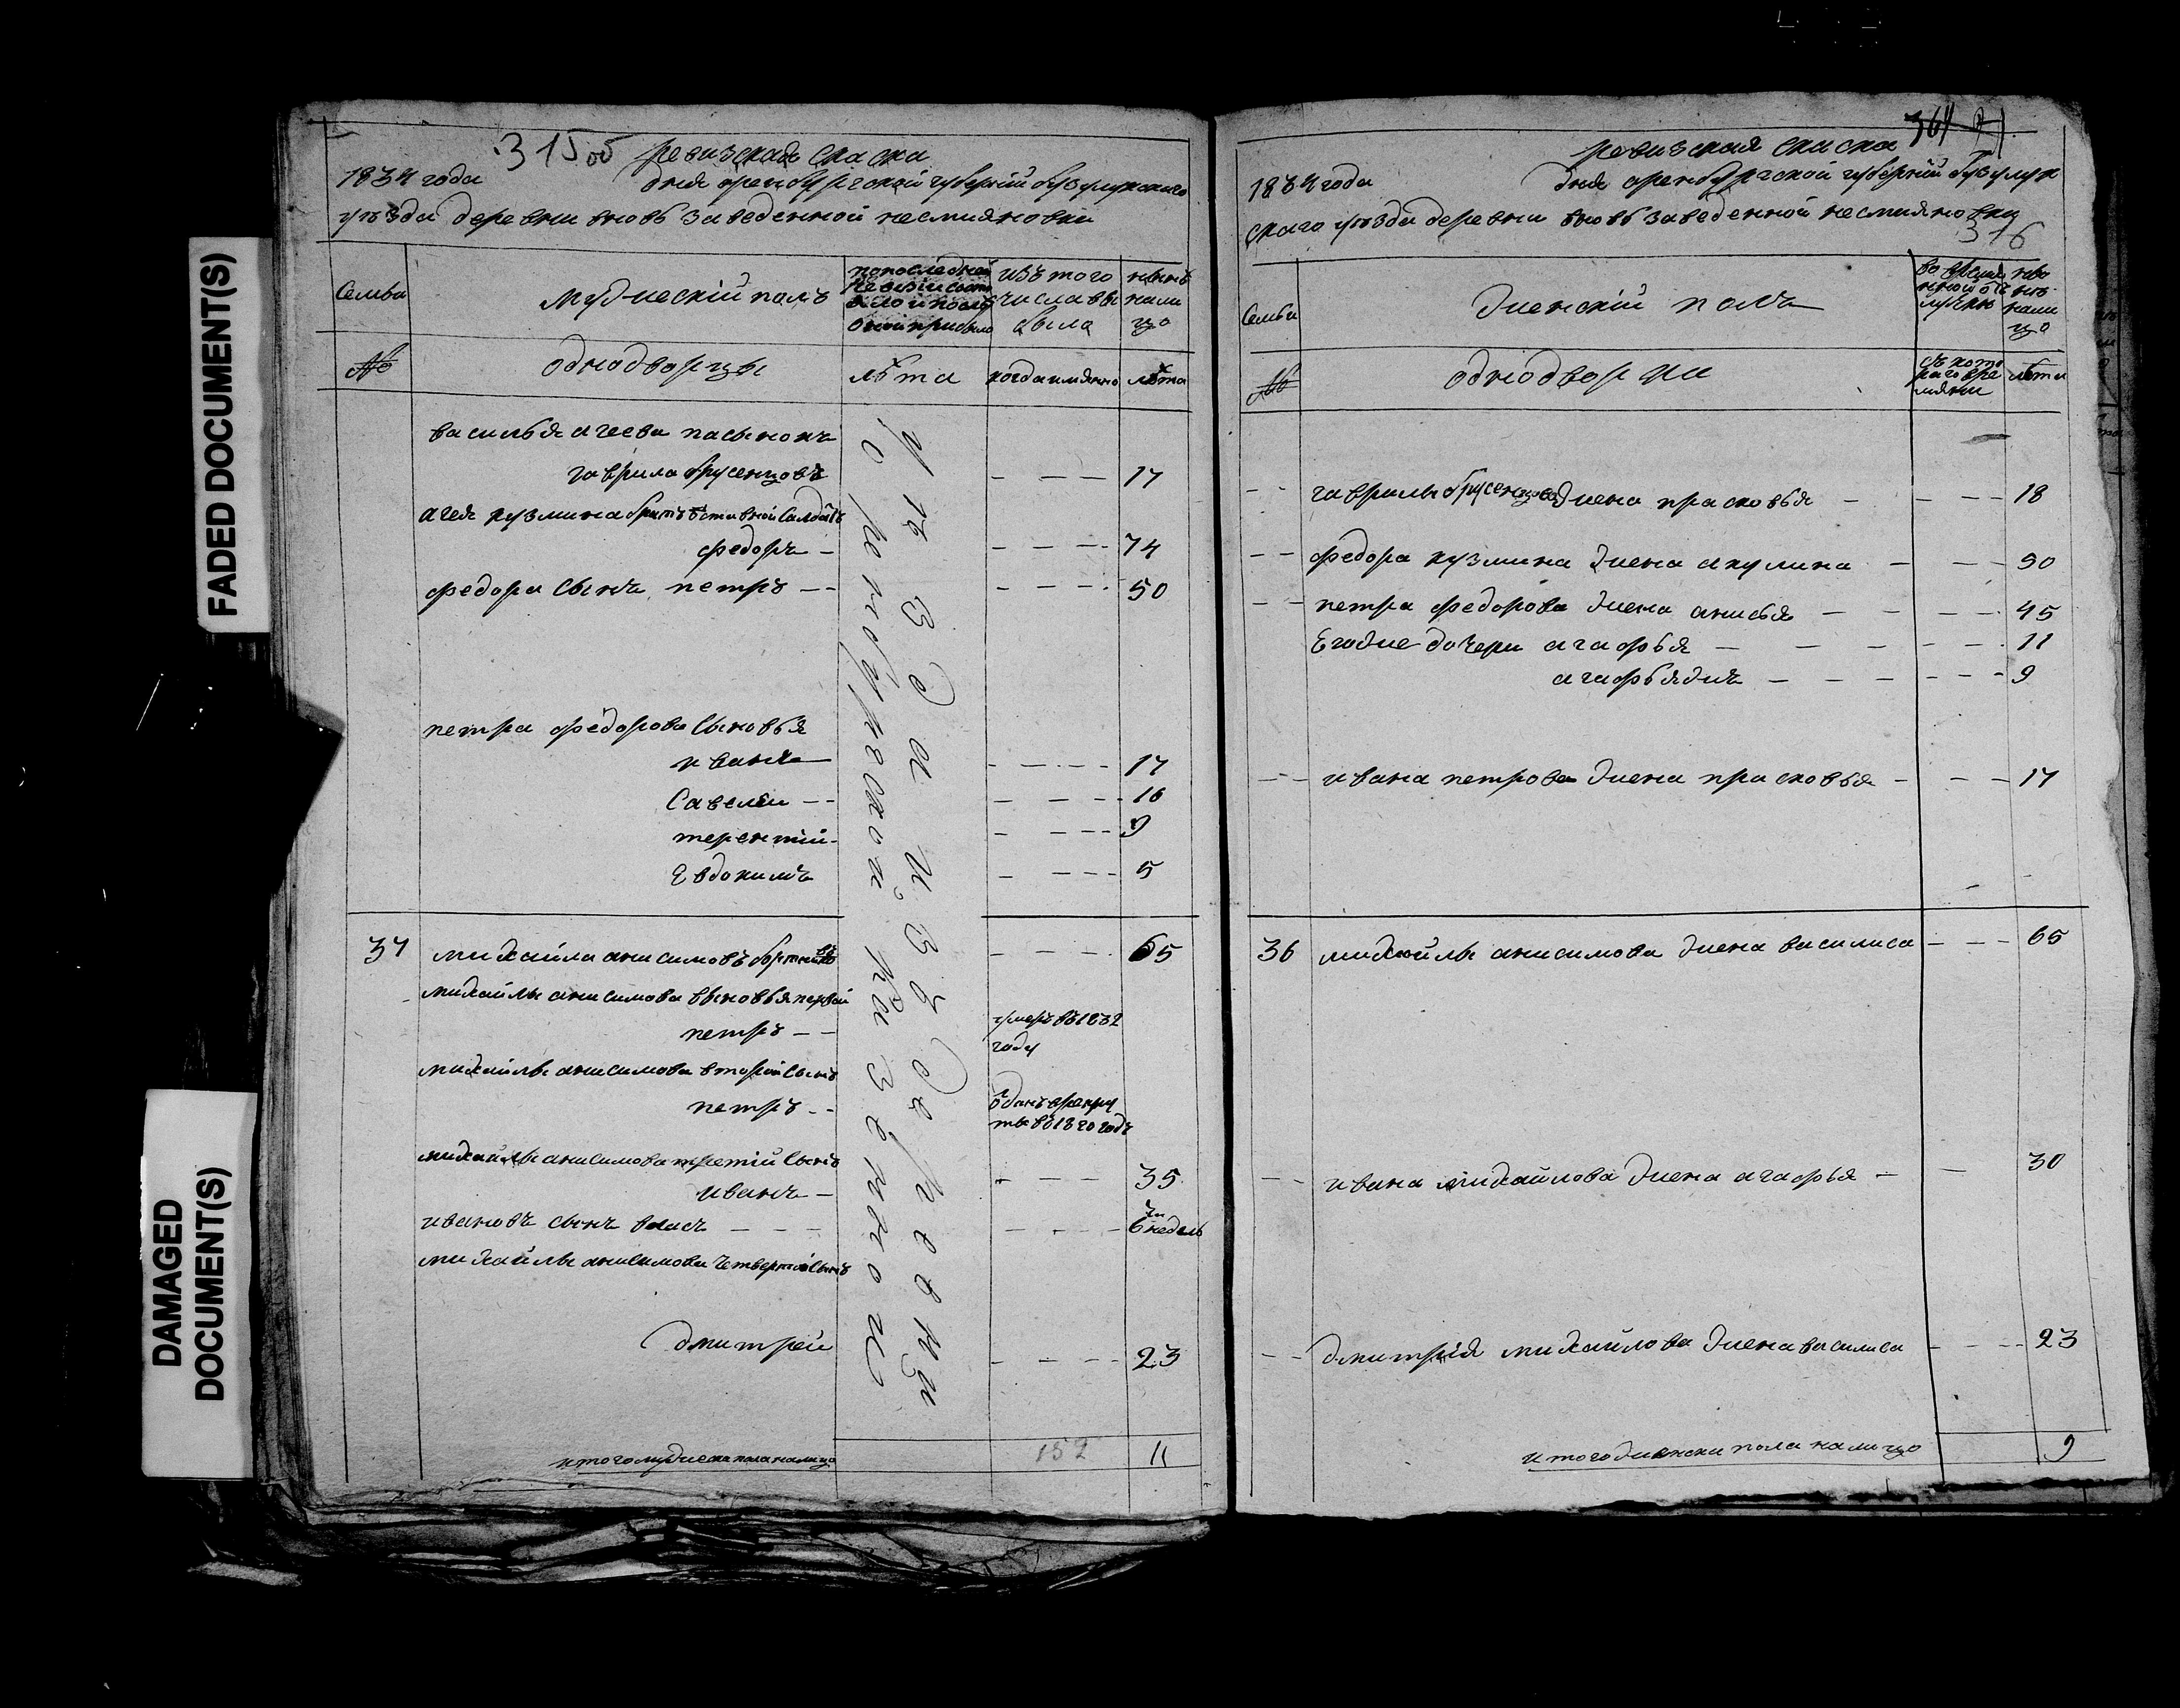 FADED DOCUMENT(S)
DAMAGED
DOCUMENT(S)
315 об
ревизская скаска
1834 года дня оренбургской губерний бузулукского
уѣзда деревни вновь заведенной несмияновки
Семьи
мужеский полъ
по последней
ревизии состо
оной прибыло
изъ того
числа вы
была
нынѣ
нали
цо
№
однодворцы
лѣта
когда имянно
лѣта
василья агеева пасынокъ
гаврила брусенцовъ - - - 17
агея кузмина братъ Солдатъ
федоръ - - - - 74
федора сынъ петръ - - - - - 50
петра федорова сыновья
иванъ - - - - 17
Савелѣи - - - - - - 16
терентий - - - - - 9
Евдокимъ - - - - 5
37 михайла анисимовъ - - - 65
михайлы анисимова сыновья первай
петръ - - умеръ въ 1832
году
михайлы анисимова второй сынъ
петръ - - отданъ в рекру
ты въ 1820 годе
михайлы анисимова третий сынъ
иванъ - - - - 35
ивановъ сынъ власъ - - - - - - 6 недель
михайлы анисимова четвертой сынъ
дмитрей - - - - 23
уѣзда из деревни
оренбургской казенной
итого мужеска пола налицо 152 11
364
ревизская скаска
1834 года дня оренбургской губерний бузулук
скаго уѣзда деревни вновь заведенной несмияновки
316
Семьи
женский полъ
во време
нной от
лучке
ны
нѣ
нали
цо
№
однодворки
съ кото
раго вре
мяни
лѣта
- - гаврилы брусенцова жена прасковья - - - - 18
- - федора кузмина жена акулина - - - 90
- - петра федорова жена анисья - - - - - 45
Егожие дочери агафья - - - - - - 11
агафья жъ - - - - - - - 9
- - - ивана петрова жена прасковья - - - 17
36 михайлы анисимова жена василиса - - - 65
- - ивана михайлова жена агафья - - 30
- - дмитрия михайлова жена василиса - - - - 23
итого женска пола налицо 9